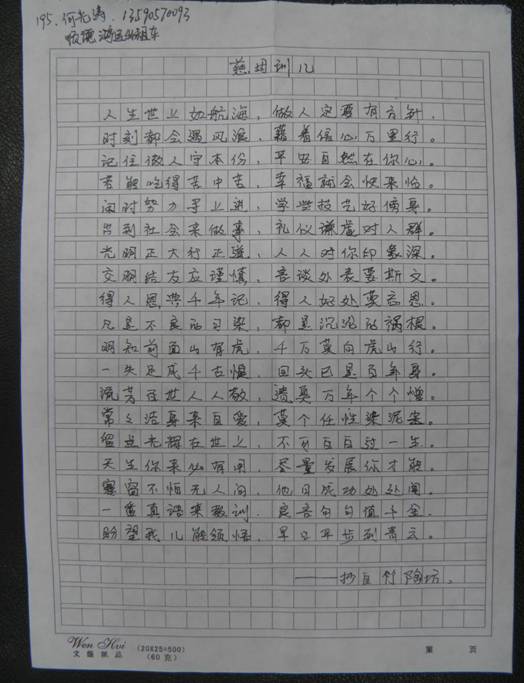 195. 何光涛 . 13590570093
顺德 出租车
慈母训儿
人生世上如航海，做人定要有方针。
时刻都会遇风浪，藉着信心万里行。
记住做人守本份，平安自然在你心。
若能吃得苦中苦，幸福就会快来临。
闲时努力寻上进，学些技先好傍身。
出到社会来做事，礼仪谦虚对人群。
光明正大行正道，人人对你印象深。
交朋结友应谨慎，言谈处表要斯文。
得人恩典千年记，得人好处要言恩。
凡是不良的习染，都是沉沦的祸根。
明知前面山有虎，千万莫向虎山行。
一失足成千古恨，回头已是百年身。
流芳百世人人敬，遗臭万年个个憎。
常々洁身来自爱，莫个任性染泥尘。
留点光辉在世上，不可白白过一生。
天生你来必有用，尽量发展你才能。
寒窗不怕无人问，他日成功处处闻。
一番真语来教训，良言句句值千金。
盼望我儿能领悟，早日平步到青云。
——抄自竹陶坊。
Wen Hvi (20X25=500)
文 纸品 (60克) 第 页